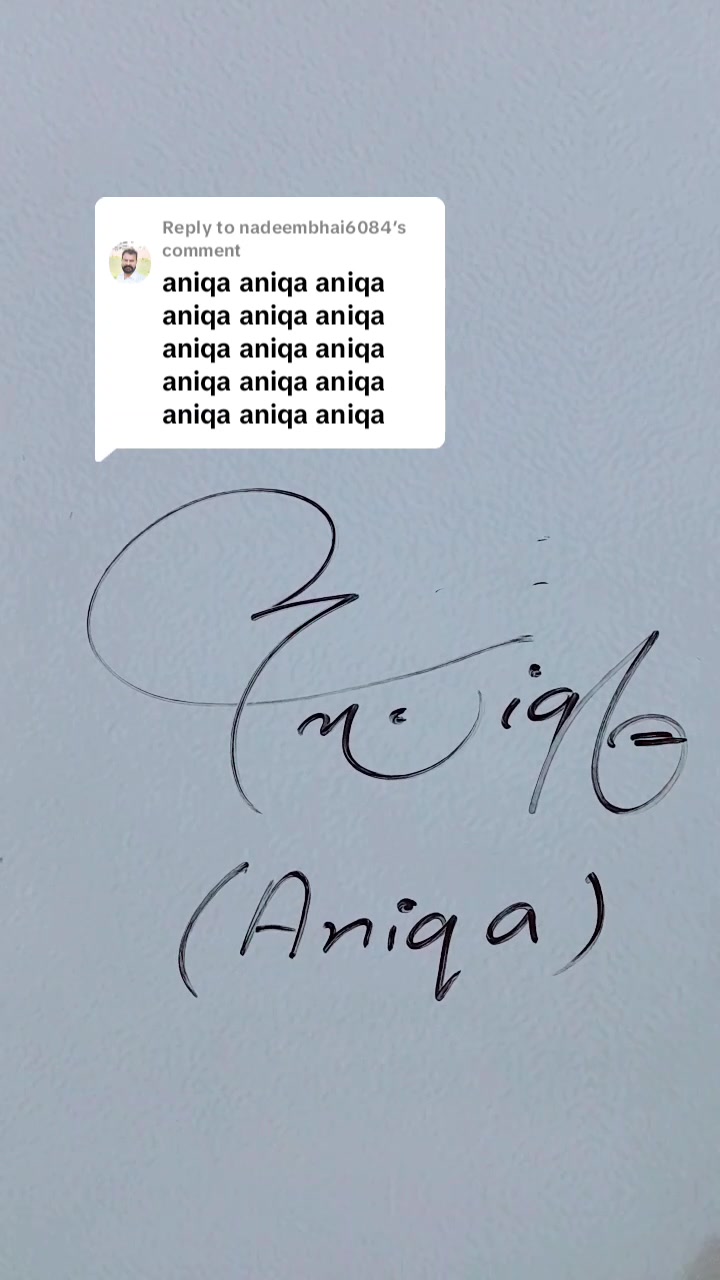 Reply to nadeembhai6084's
comment
aniqa aniqa aniqa
aniqa aniqa aniqa
aniqa aniqa aniqa
aniqa aniqa aniqa
aniqa aniqa aniqa
(Aniqa)